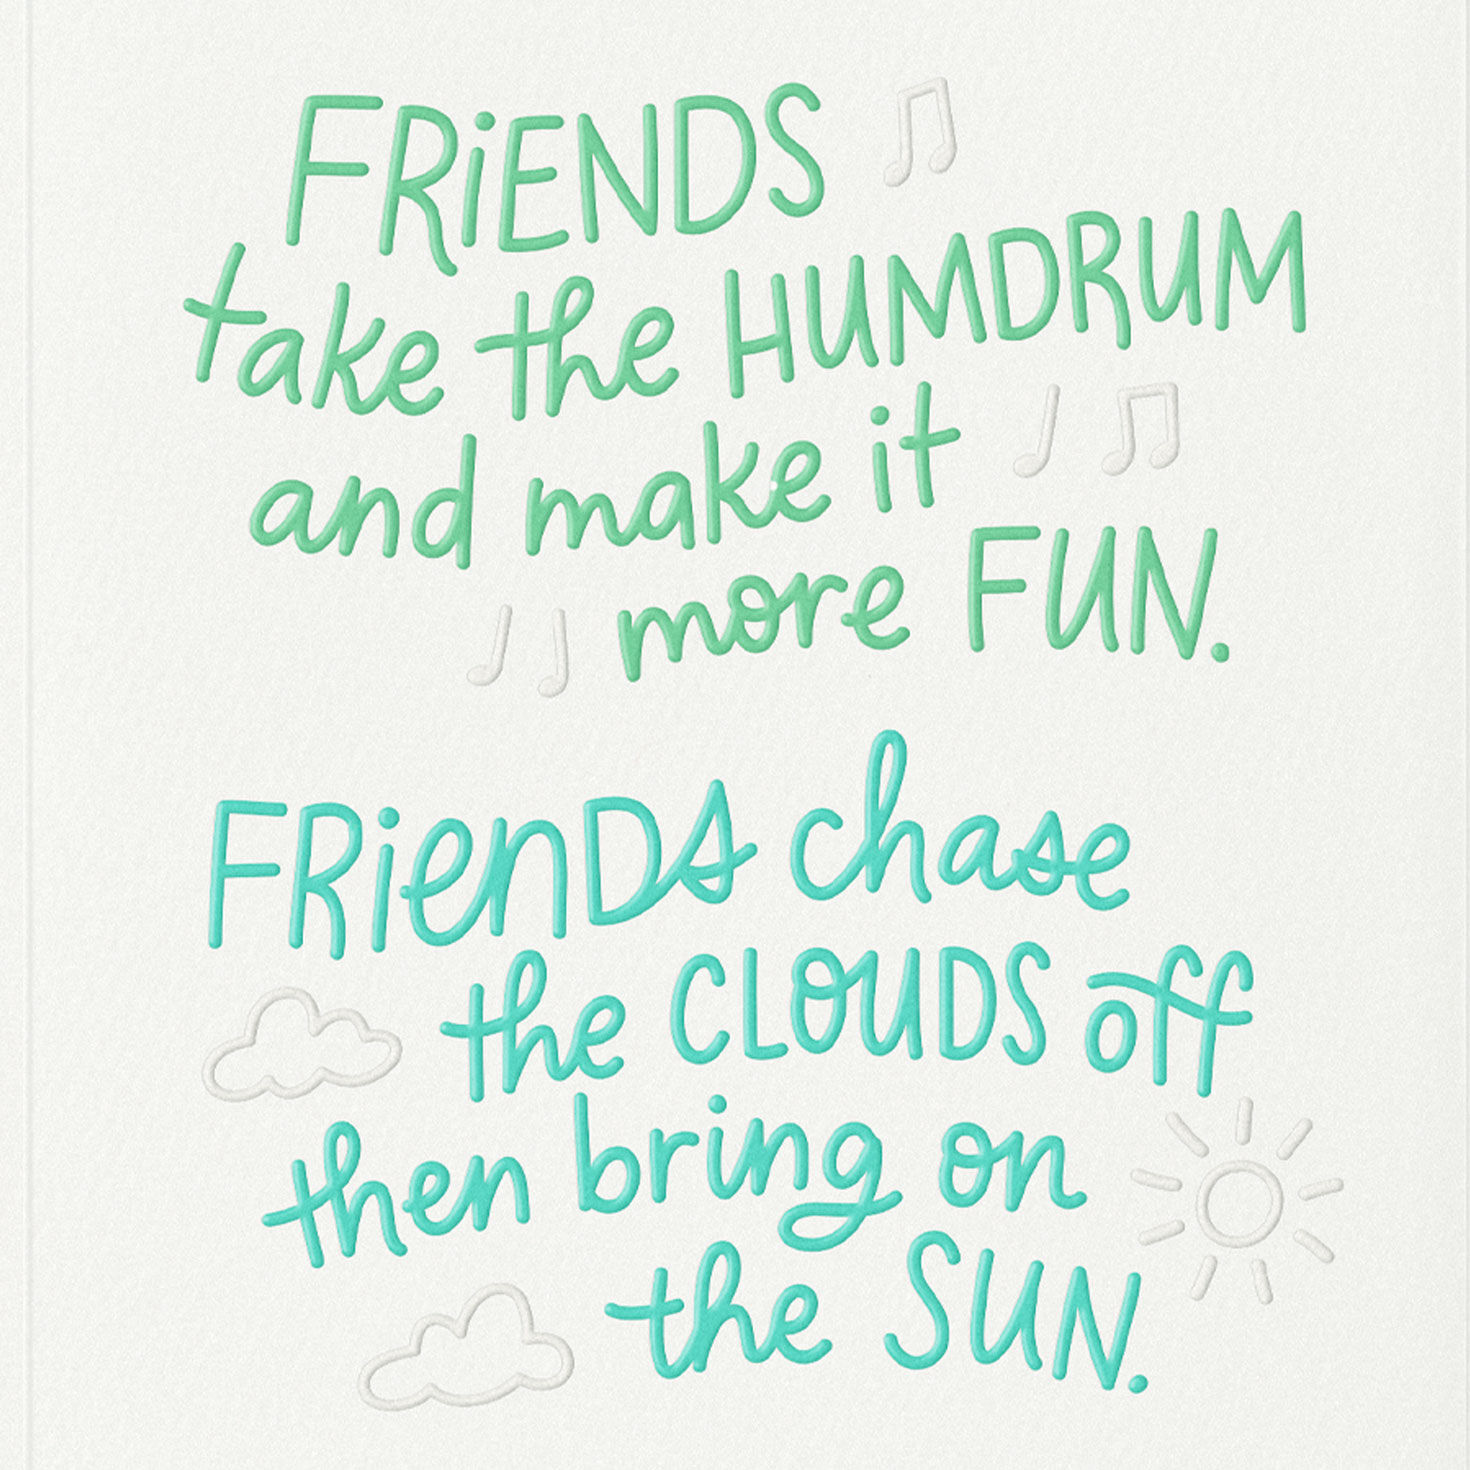 FRiENDS
take the HUMDRUM
and make it
more FUN.
FRienDs chase
the CLOUDS off
then bring on
the SUN.